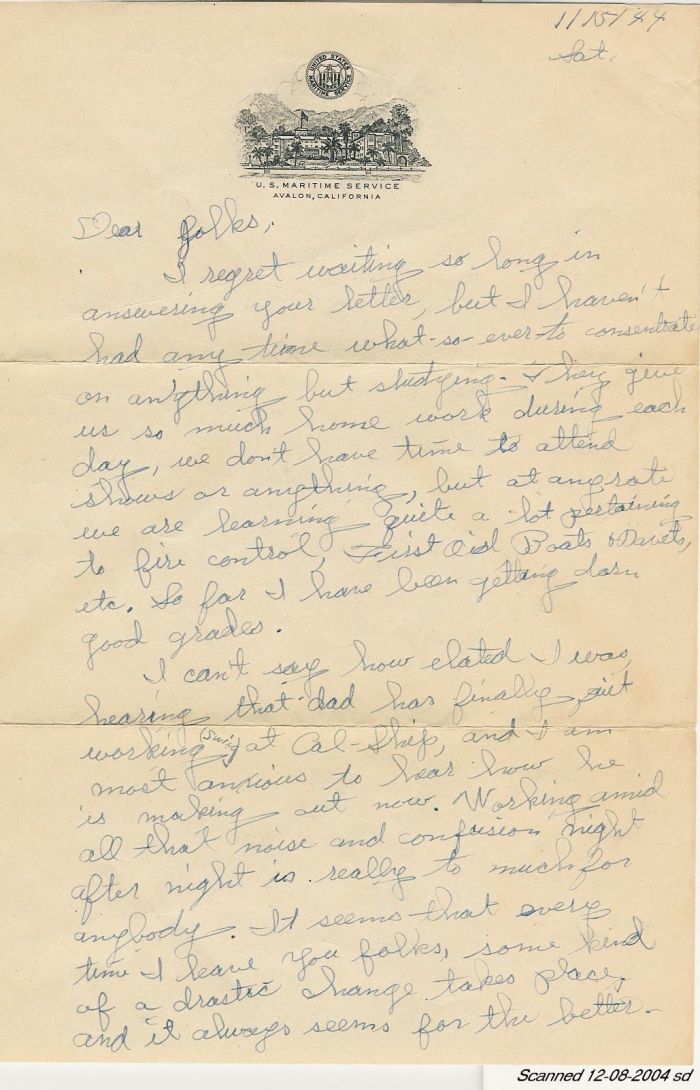 1/15/44
Sat.
UNITED STATES
MARITIME SERVICE
U.S. MARITIME SERVICE
AVALON, CALIFORNIA
Dear folks,
I regret waiting so long in
answering your letter, but I haven't
had any time what-so-ever to consentrate
on anything but studying. They give
us so much home work during each
day, we don't have time to attend
shows or anything, but at anyrate
we are learning quite a lot pertaining
to fire control, First Aid Boats & Davits,
etc. So far I have been getting darn
good grades.
I can't say how elated I was
hearing that dad has finally quit
working (swing) at Cal-Ship, and I am
most anxious to hear how he
is making out now. Working amid
all that noise and confusion night
after night is really to much for
anybody. It seems that every
time I leave you folks, some kind
of a drastic change takes place,
and it always seems for the better.
Scanned 12-08-2004 sd